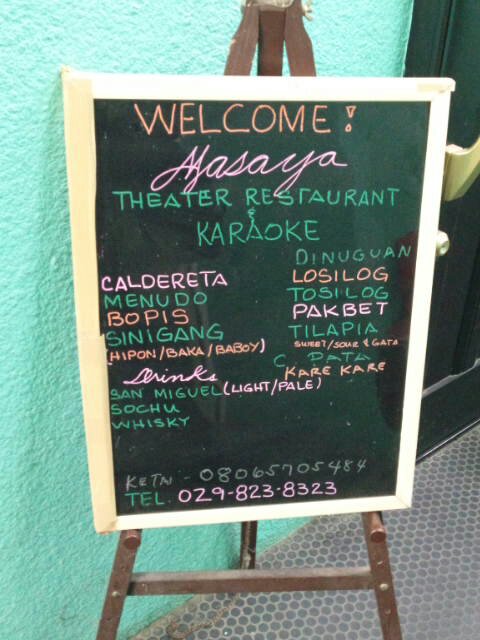 WELCOME!
Masaya
THEATER RESTAURANT
&
KARAOKE
CALDERETA
MENUDO
BOPIS
SINIGANG
(HIPON/BAKA/BABOY)
DINUGUAN
LOSILOG
TOSILOG
PAKBET
TILAPIA
SWEET/SOUR & GATA
C. PATA
KARE KARE
Drinks
SAN MIGUEL (LIGHT/PALE)
SOCHU
WHISKY
KETAI - 08065705484
TEL. 029-823-8323